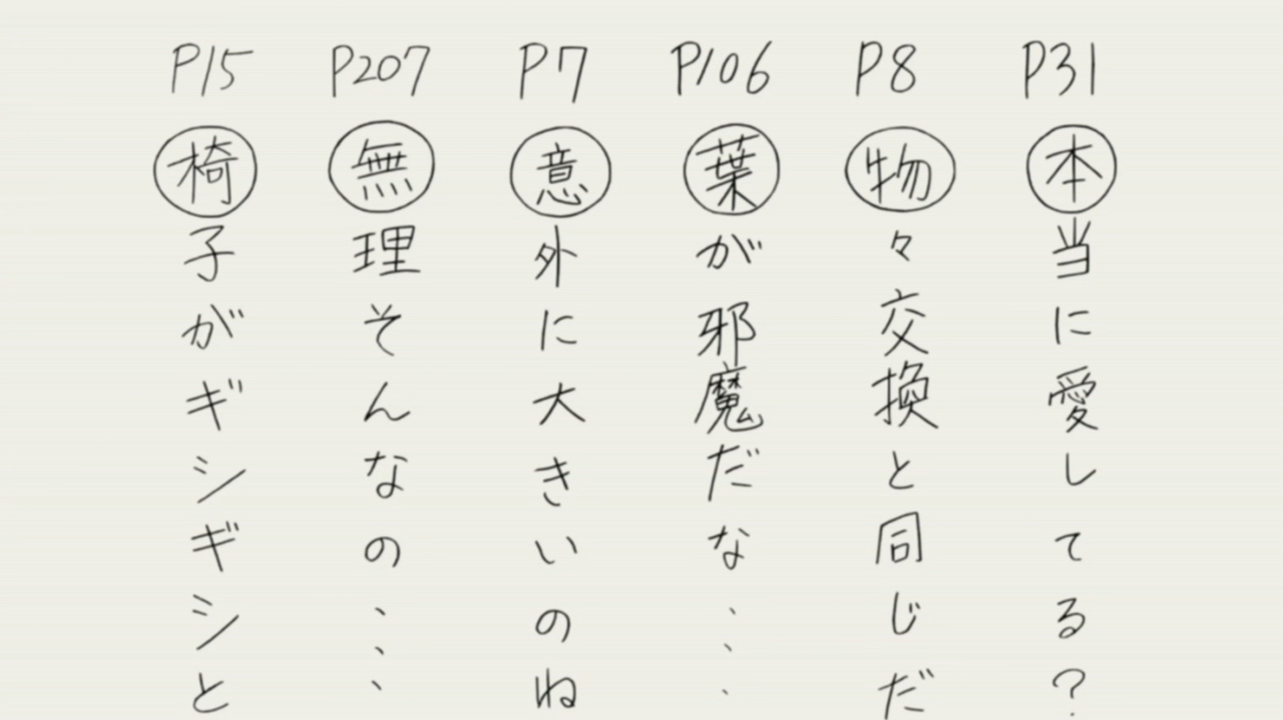 P31 本当に愛してる?
P8 物々交換と同じだ
P106 葉が邪魔だな...
P7 意外に大きいのね
P207 無理そんなの...
P15 椅子がギシギシと